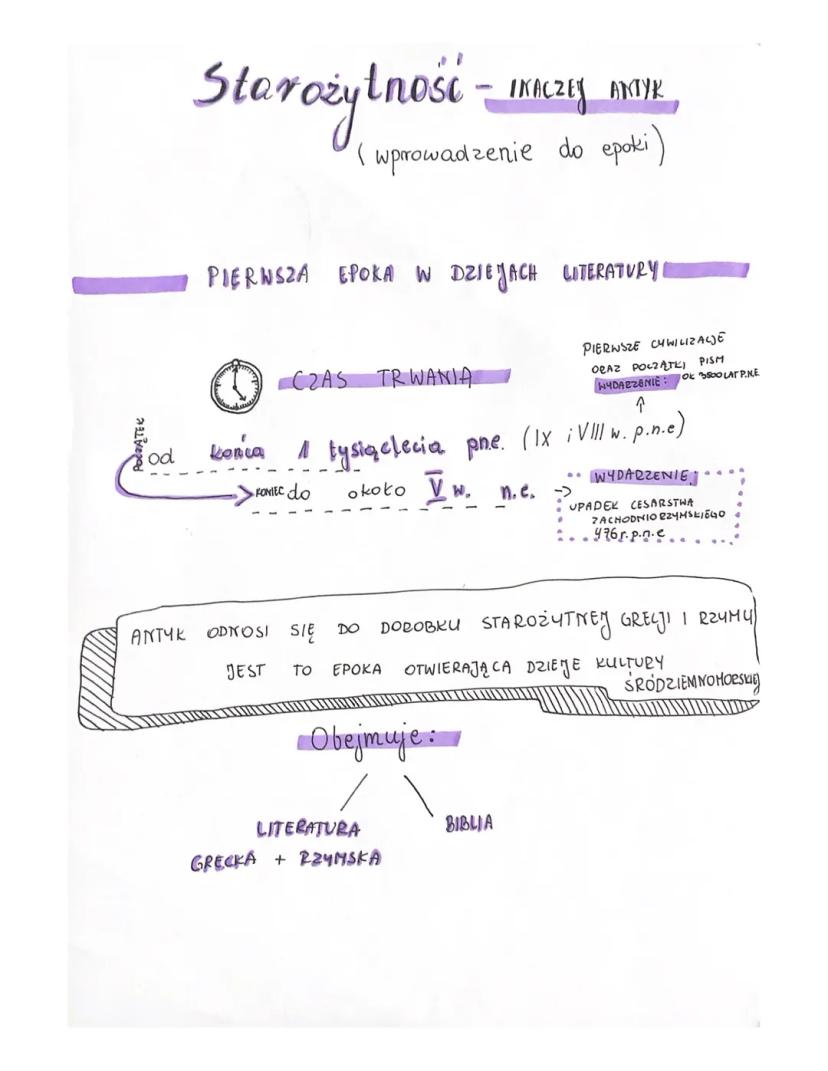 Starożytność - INACZEJ ANTYK
(wprowadzenie do epoki)
PIERWSZA EPOKA W DZIEJACH LITERATURY
CZAS TRWANIA
PIERWSZE CYWILIZACJE
ORAZ POCZĄTKI PISM
WYDARZENIE: OK 3500 LAT P.N.E
POCZĄTEK
od końca 1 tysiąclecia pne. (IX i VIII w. p.n.e)
KONIEC do około V w. n.e. →
WYDARZENIE:
UPADEK CESARSTWA
ZACHODNIORZYMSKIEGO
476r. p.n.e
ANTYK ODNOSI SIĘ DO DOROBKU STAROŻYTNEJ GRECJI I RZYMU
JEST TO EPOKA OTWIERAJĄCA DZIEJE KULTURY
ŚRÓDZIEMNOMORSKIEJ
Obejmuje:
LITERATURA
GRECKA + RZYMSKA
BIBLIA